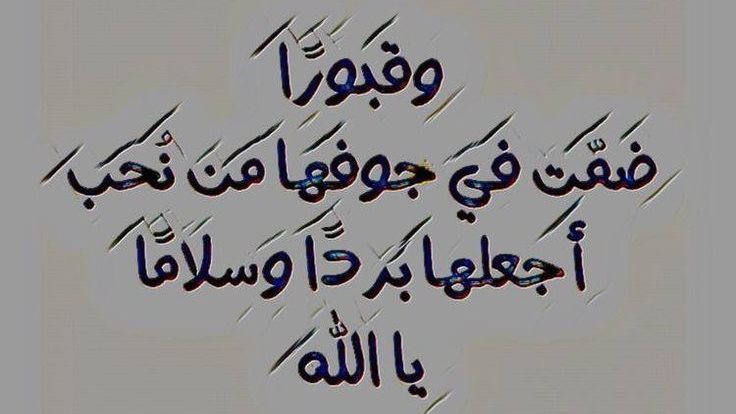 وقبورًا
ضَمَّت في جوفهَا مَن نُحَب
أجعلها بَردًا وَسلَامًا
يا الله